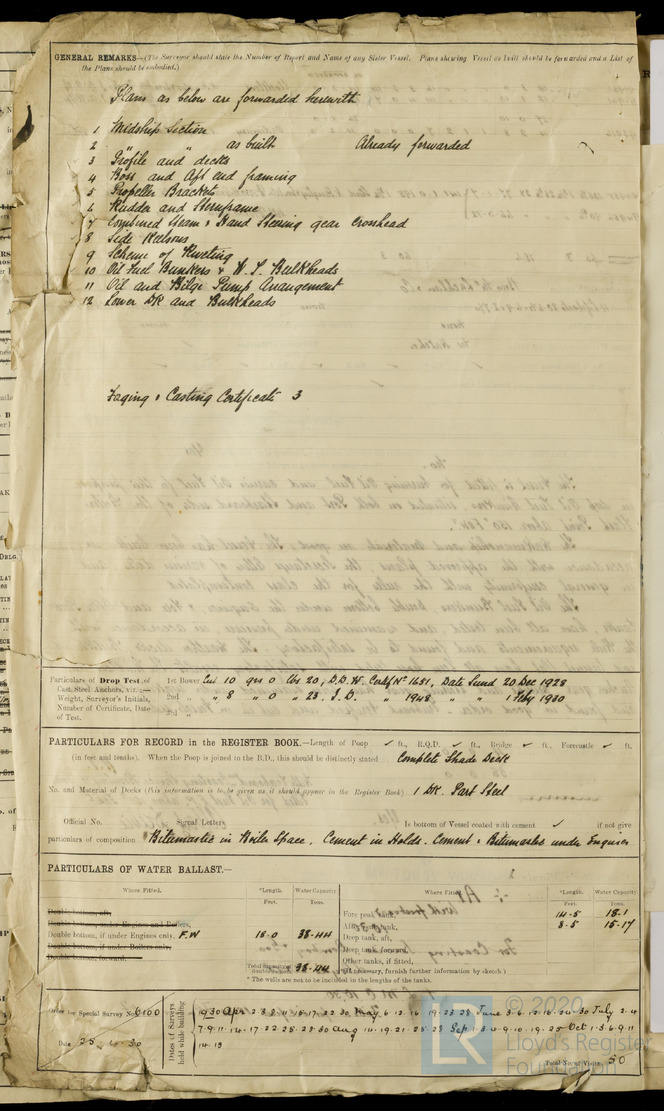 GENERAL REMARKS—(The Surveyor should state the Number of Report and Name of any Sister Vessel. Plans shewing Vessel as built should be forwarded and a List of
the Plans should be embodied.)
Plans as below are forwarded herewith
1 Midship Section
2 " " as built Already forwarded
3 Profile and decks
4 Boss and Aft end framing
5 Propeller Brackets
6 Rudder and Sternframe
7 Combined Steam & Hand Steering gear Crosshead
8 Side Keelsons
9 Scheme of Riveting
10 Oil Fuel Bunkers & W. T. Bulkheads
11 Oil and Bilge Pump Arrangement
12 Lower DK and Bulkheads
Forging & Casting Certificate 3
Particulars of Drop Test of 1st Bower Cwt 10 qrs 0 lbs 20, D.D.W. Certf No 1651, Date Sund 20 Dec 1928
Cast Steel Anchors, viz.:—
Weight, Surveyor's Initials, 2nd " " 8 " 0 " 23, J.D. " 1948 " " 1 Feby 1930
Number of Certificate, Date
of Test. 3rd "
PARTICULARS FOR RECORD in the REGISTER BOOK.—Length of Poop ✓ ft., R.Q.D. ✓ ft., Bridge ✓ ft., Forecastle ✓ ft.
(in feet and tenths). When the Poop is joined to the B.D., this should be distinctly stated Complete Shade Deck
No. and Material of Decks (this information is to be given as it should appear in the Register Book) 1 DK. Part Steel
Official No. Signal Letters Is bottom of Vessel coated with cement ✓ if not give
particulars of composition Bitumastic in Boiler Space, Cement in Holds. Cement & Bitumastic under Engines
PARTICULARS OF WATER BALLAST.—
Where Fitted. *Length. Water Capacity Where Fitted. *Length. Water Capacity
Feet. Tons. Feet. Tons.
Double bottom, aft,
Fore peak tank, 14.5 18.1
Double bottom, under Engines and Boilers,
tank, 8.5 15.17
Double bottom, if under Engines only, F.W 18.0 38.44
Deep tank, aft,
Double bottom, if under Boilers only,
Deep tank, forward,
Double bottom, forward,
Other tanks, if fitted,
38.44 (If necessary, furnish further information by sketch)
* The wells are not to be included in the lengths of the tanks.
Order for Special Survey No. 6100
Date 25.4.30
Dates of Surveys held while building
1930 Apr 2.3.8.11.15.17.22.30 May 6.12.16.19.23.28 June 3.6.12.16.24.30 July 2.4
7.9.11.14.17.22.25.28.30 Aug 14.19.21.25.28 Sep 1.3.4.9.10.19.25 Oct 1.3.6.9.11
14.15
Total No. of Visits 50
LR
© 2020
Lloyd's Register
Foundation